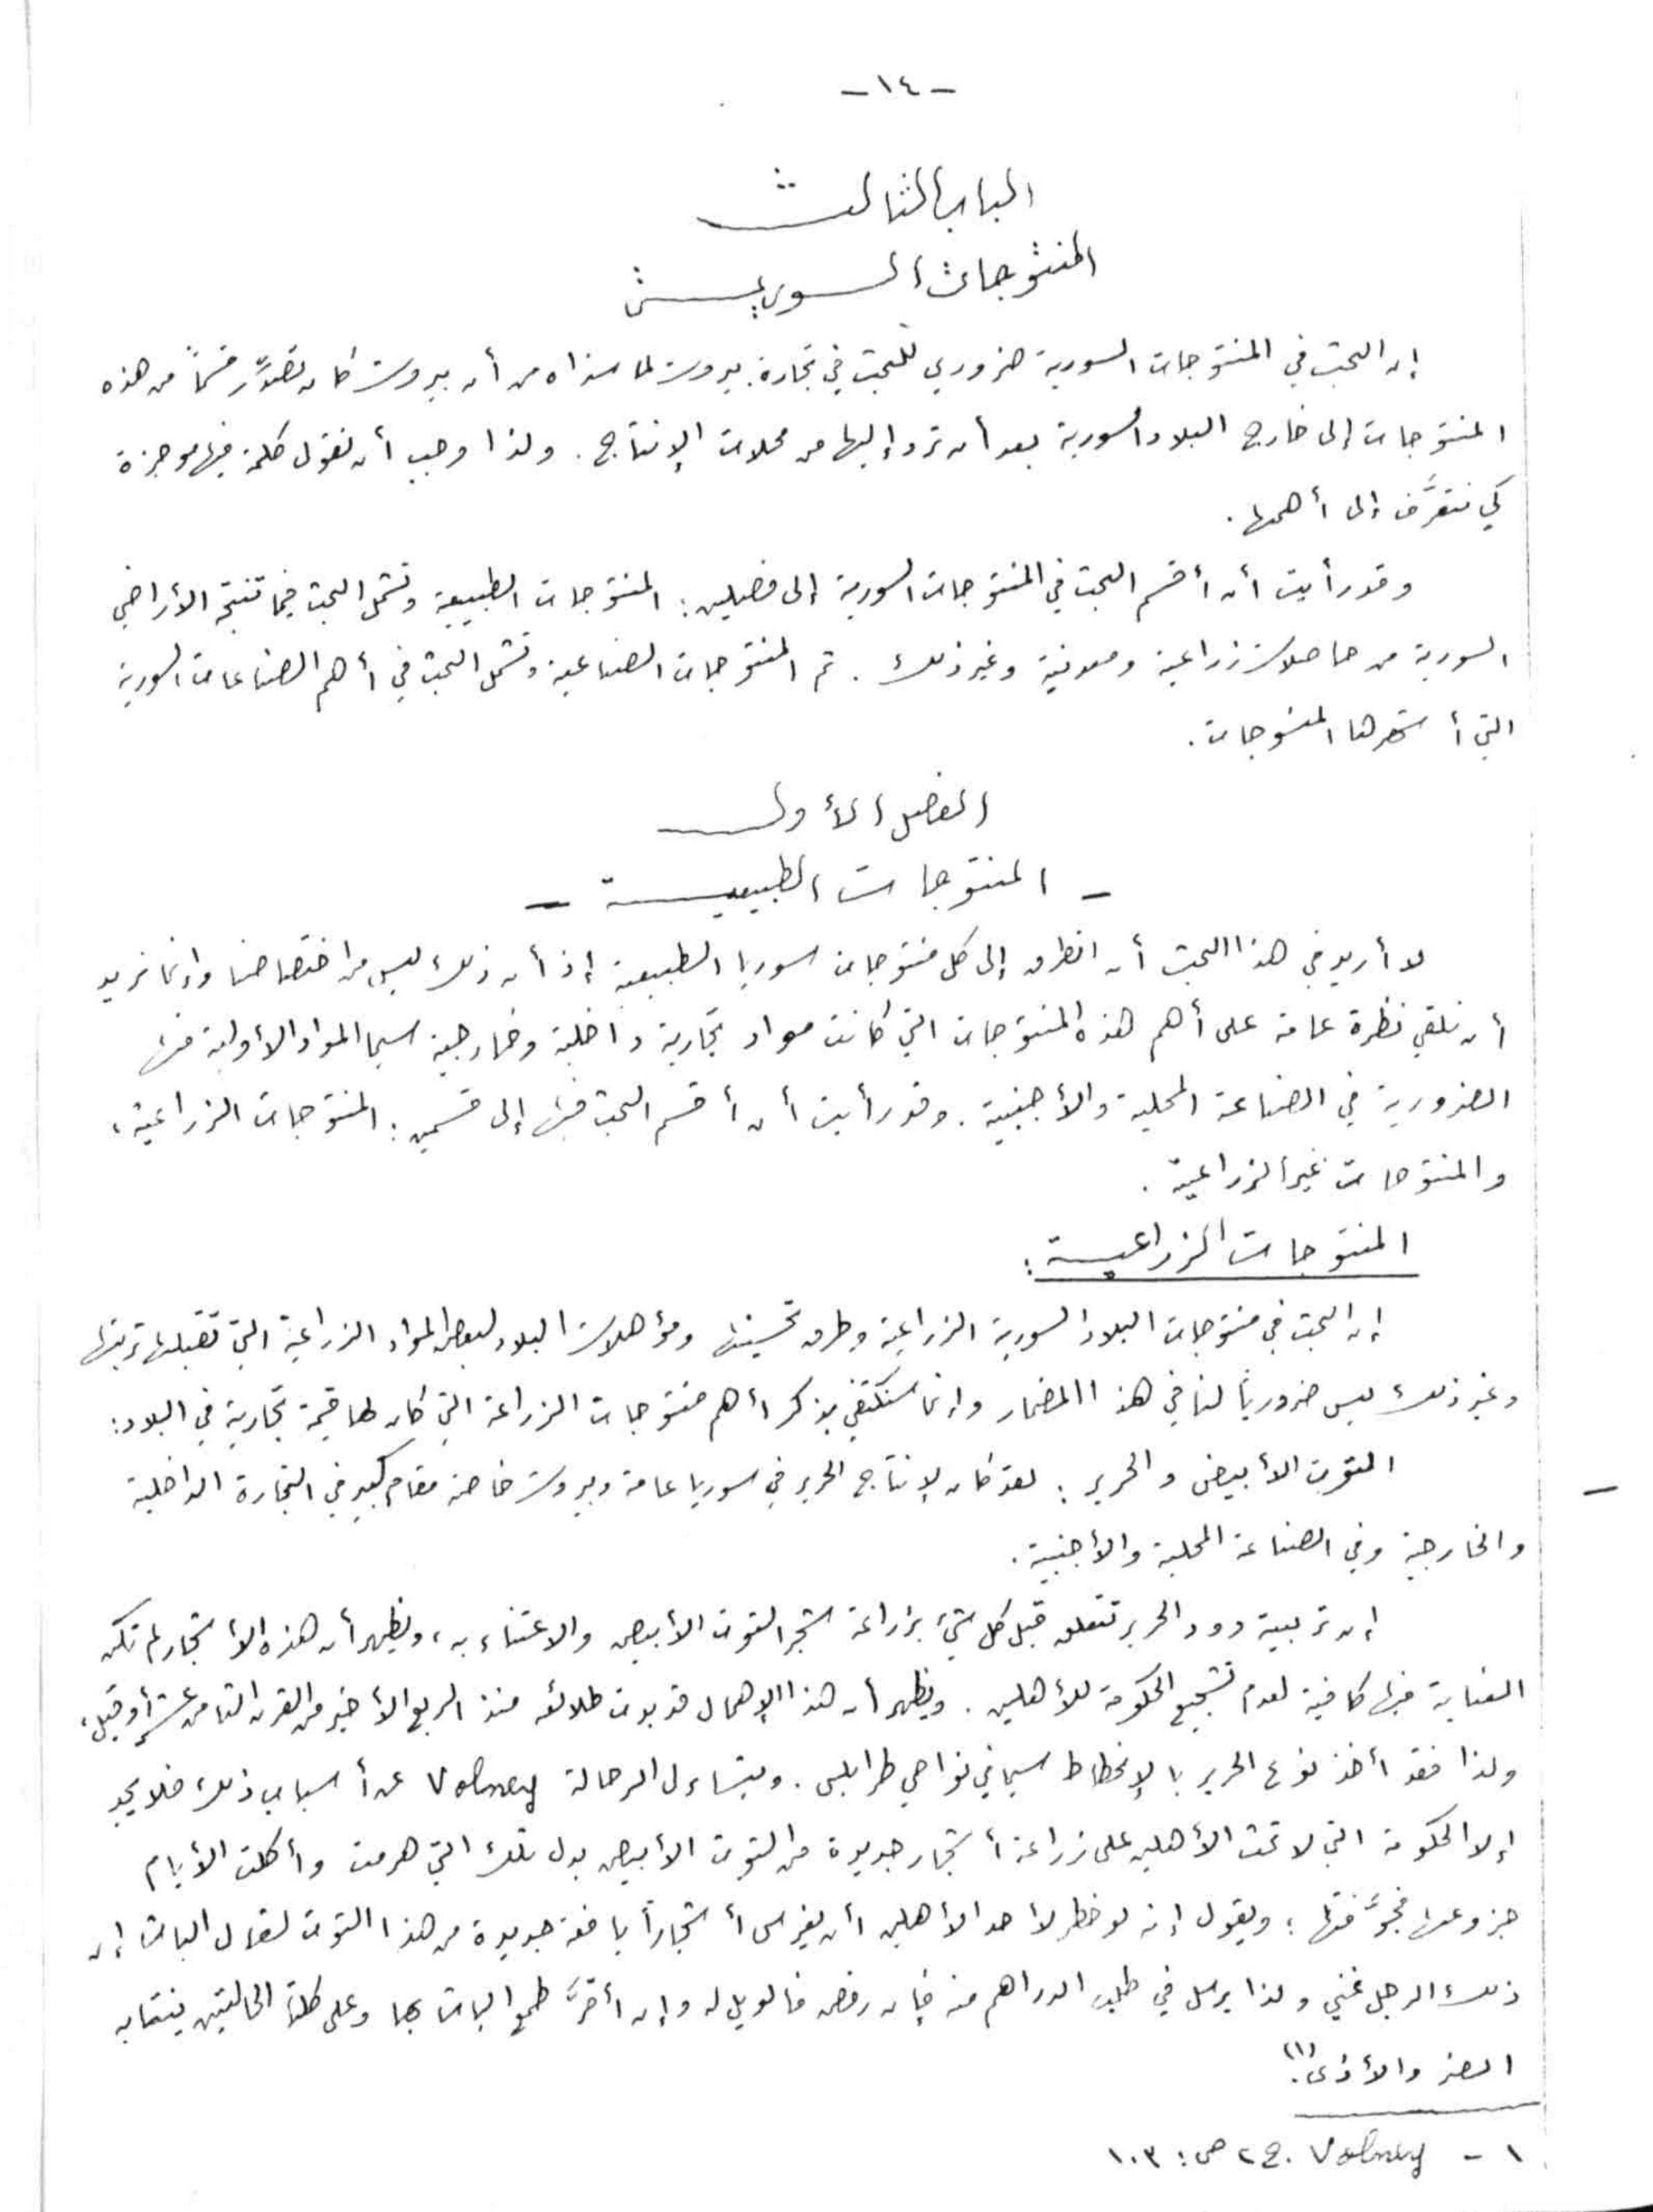 -١٤-
الباب الثالث
المنتوجات السورية
إن البحث في المنتوجات السورية ضروري للبحث في تجارة بيروت لما سنراه من أن بيروت كان تصدّر قسماً من هذه
المنتوجات إلى خارج البلاد السورية بعد أن ترد إليها من محلات الإنتاج. ولذا وجب أن نقول كلمة فيها موجزة
كي نتعرَّف إلى أهمها.
وقد رأيت أن أقسم البحث في المنتوجات السورية إلى فصلين: المنتوجات الطبيعية وتشمل البحث فيما تنتجه الأراضي
السورية من حاصلات زراعية ومعدنية وغير ذلك. ثم المنتوجات الصناعية وتشمل البحث في أهم الصناعات السورية
التي أشهرها المنسوجات.
الفصل الأول
- المنتوجات الطبيعية -
لا أريد في هذا البحث أن اتطرق إلى كل منتوجات سوريا الطبيعية إذ أن ذلك ليس من اختصاصنا وإنما نريد
أن نلقي نظرة عامة على أهم هذه المنتوجات التي كانت مواد تجارية داخلية وخارجية سيما المواد الأولية منها
الضرورية في الصناعة المحلية والأجنبية. وقد رأيت أن أقسم البحث فيها إلى قسمين: المنتوجات الزراعية،
والمنتوجات غير الزراعية.
المنتوجات الزراعية:
إن البحث في منتوجات البلاد السورية الزراعية وطرق تحسينها ومؤهلات البلاد لبعض المواد الزراعية التي تقبلها تربتها
وغير ذلك ليس ضرورياً لنا في هذا المضمار وإنما سنكتفي بذكر أهم منتوجات الزراعة التي كان لها قيمة تجارية في البلاد:
- التوت الأبيض والحرير: لقد كان لإنتاج الحرير في سوريا عامة وبيروت خاصة مقام كبير في التجارة الداخلية
والخارجية وفي الصناعة المحلية والأجنبية.
إن تربية دود الحرير تتعلق قبل كل شيء بزراعة شجر التوت الأبيض والاعتناء به، ويظهر أن هذه الأشجار لم تكن
العناية فيها كافية لعدم تشجيع الحكومة للأهلين. ويظهر أن هذا الإهمال قد بدت طلائعه منذ الربع الأخير من القرن الثامن عشر أو قبل،
ولذا فقد أخذ نوع الحرير بالإنحطاط سيما في نواحي طرابلس. ويتساءل الرحالة Volney عن أسباب ذلك فلا يجد
إلا الحكومة التي لا تحث الأهلين على زراعة أشجار جديدة من التوت الأبيض بدل تلك التي هرمت وأكلت الأيام
جزوعها فجوَّفتها؛ ويقول إنه لو خطر لأحد الأهلين أن يغرس أشجاراً يافعة جديدة من هذا التوت لقال الباشا إن
ذلك الرجل غني ولذا يرسل في طلب الدراهم منه فإن رفض فالويل له وإن أقرّ طمع الباشا بها وعلى كلتا الحالتين ينتابه
الضر والأذى(١).
١ - Volney. ج ٢ ص: ١٠٣